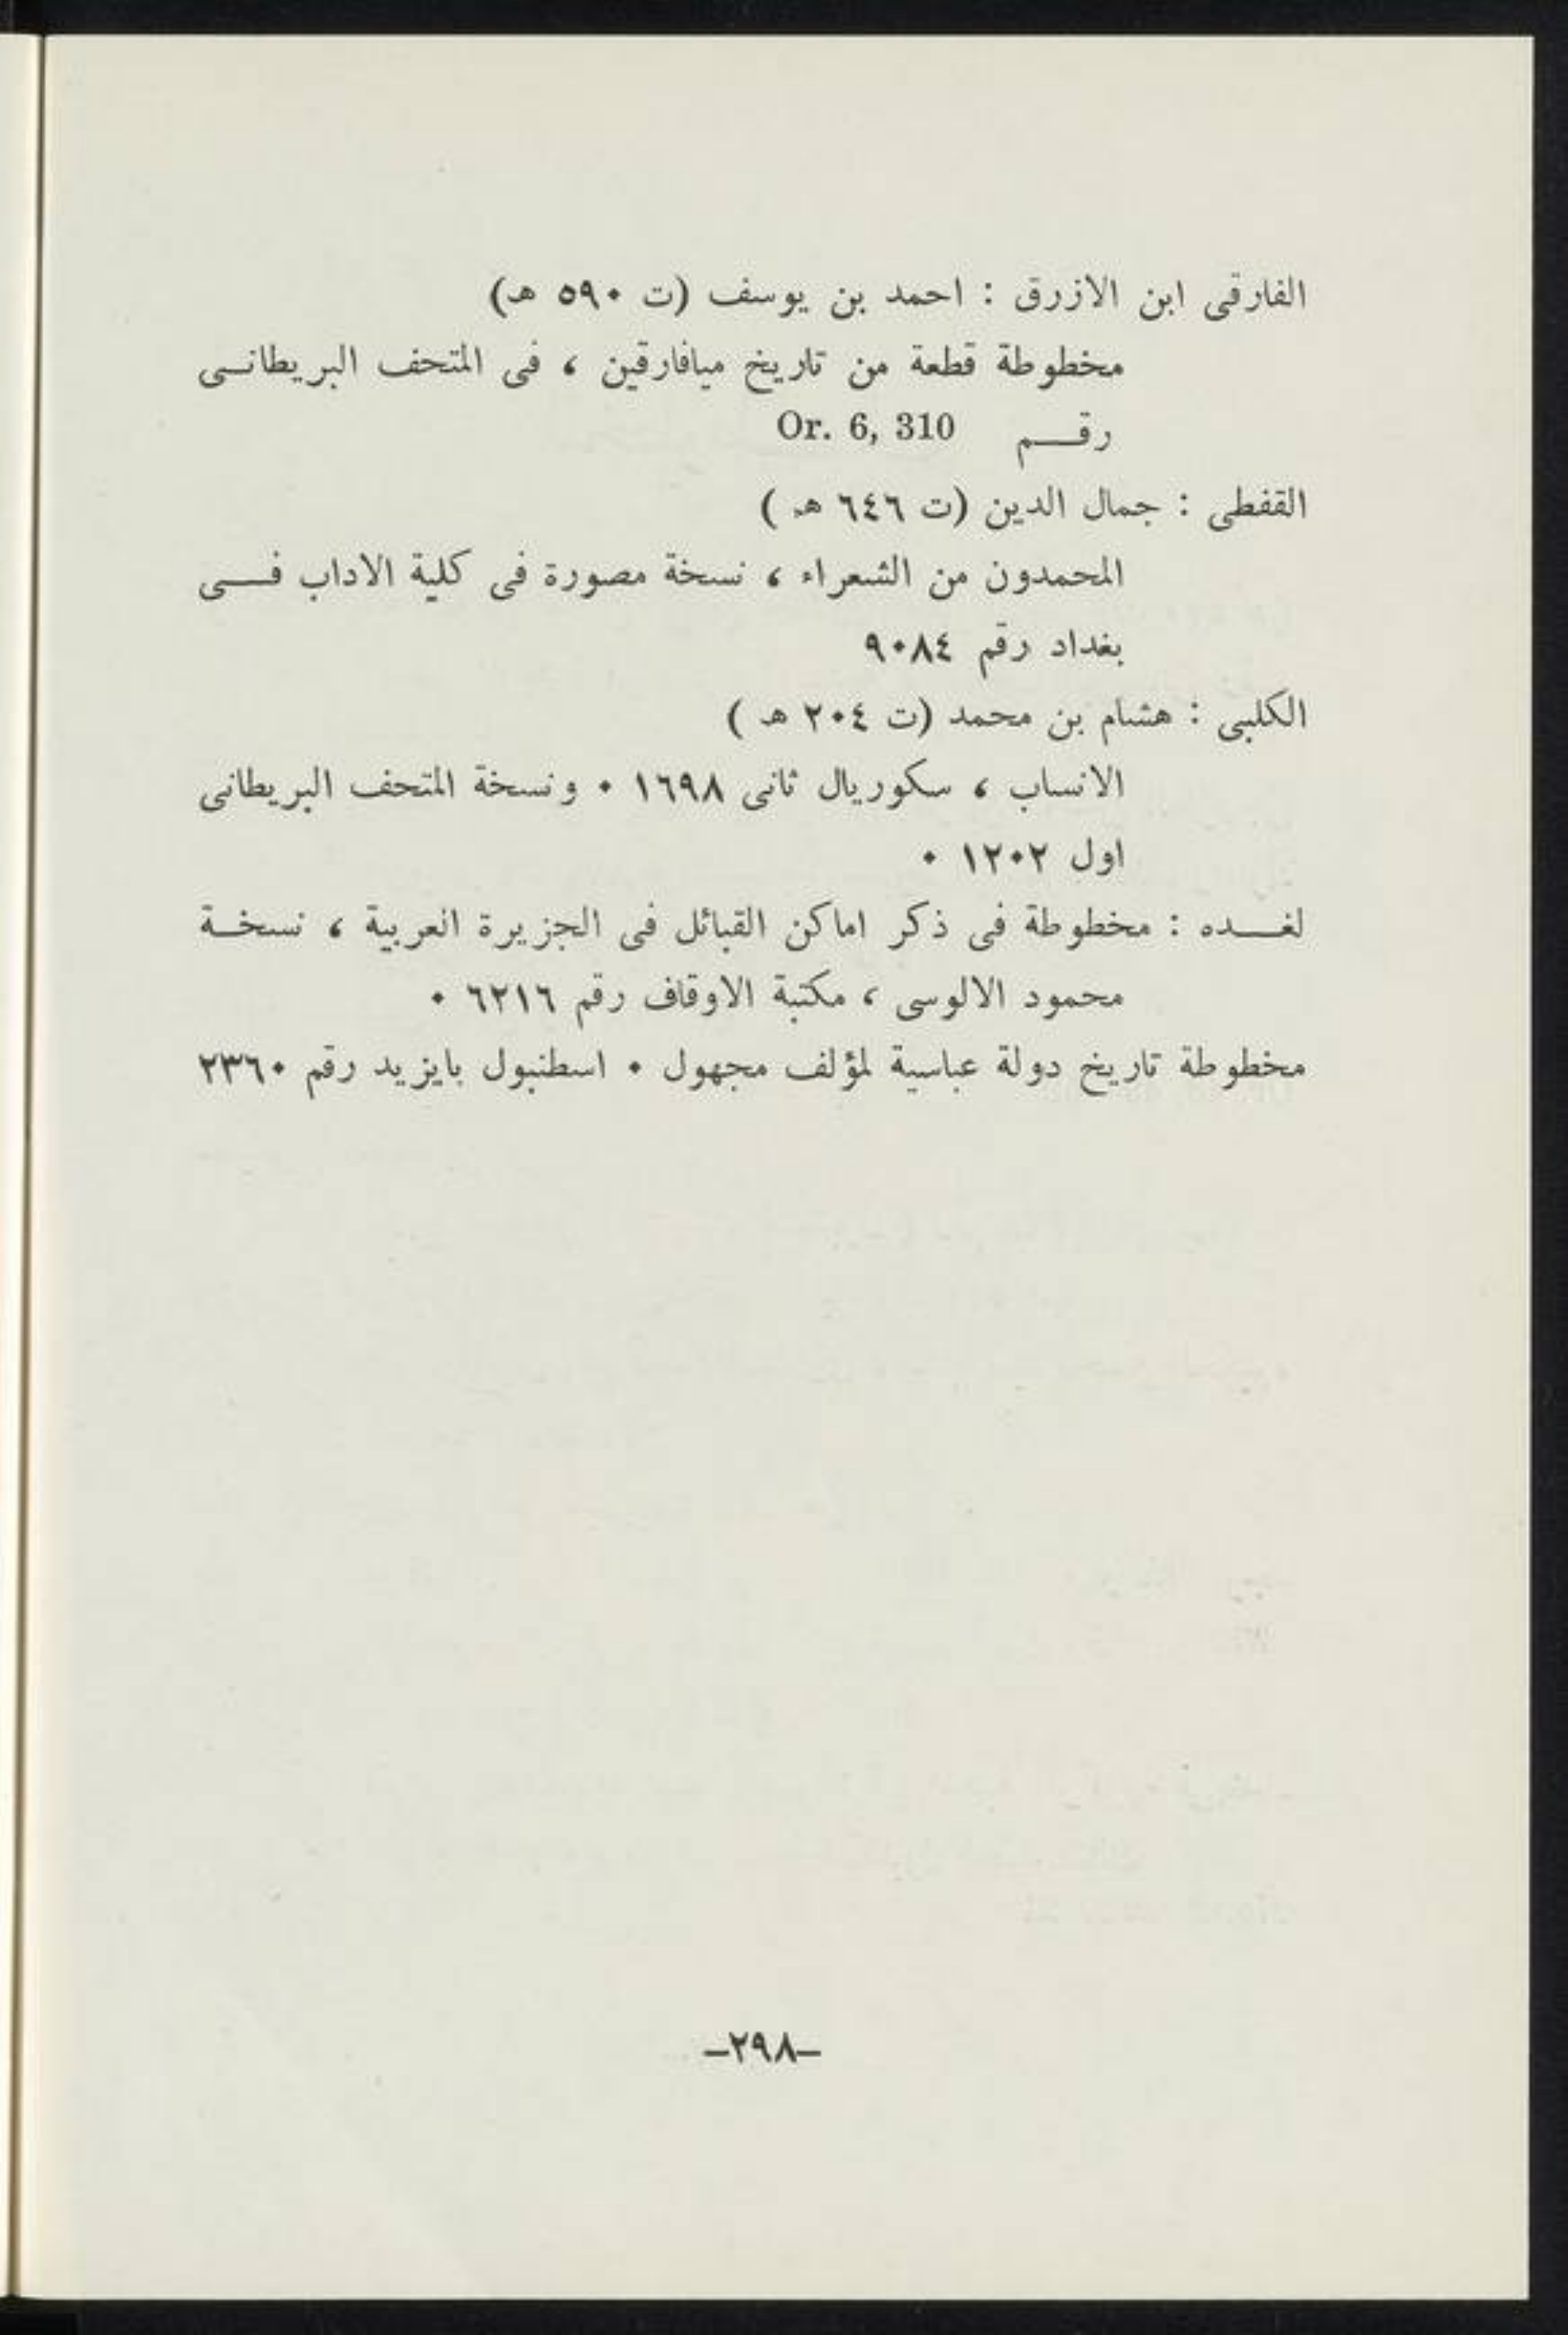 الفارقى ابن الازرق : احمد بن يوسف (ت ٥٩٠ هـ)
مخطوطة قطعة من تاريخ ميافارقين ، فى المتحف البريطانـى
رقـــم Or. 6, 310
القفطى : جمال الدين (ت ٦٤٦ هـ )
المحمدون من الشعراء ، نسخة مصورة فى كلية الاداب فـــى
بغداد رقم ٩٠٨٤
الكلبى : هشام بن محمد (ت ٢٠٤ هـ )
الانساب ، سكوريال ثانى ١٦٩٨ ٠ ونسخة المتحف البريطانى
اول ١٢٠٢ ٠
لغـــده : مخطوطة فى ذكر اماكن القبائل فى الجزيرة العربية ، نسخـة
محمود الالوسى ، مكتبة الاوقاف رقم ٦٢١٦ ٠
مخطوطة تاريخ دولة عباسية لمؤلف مجهول ٠ اسطنبول بايزيد رقم ٢٣٦٠
–٢٩٨–